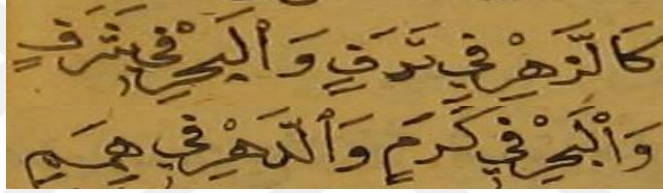 كَالزَّهْرِ فِي تَرَفٍ وَٱلْبَحْرِ فِي شَرَفٍ
وَٱلْبَحْرِ فِي كَرَمٍ وَٱلدَّهْرِ فِي هِمَمِ